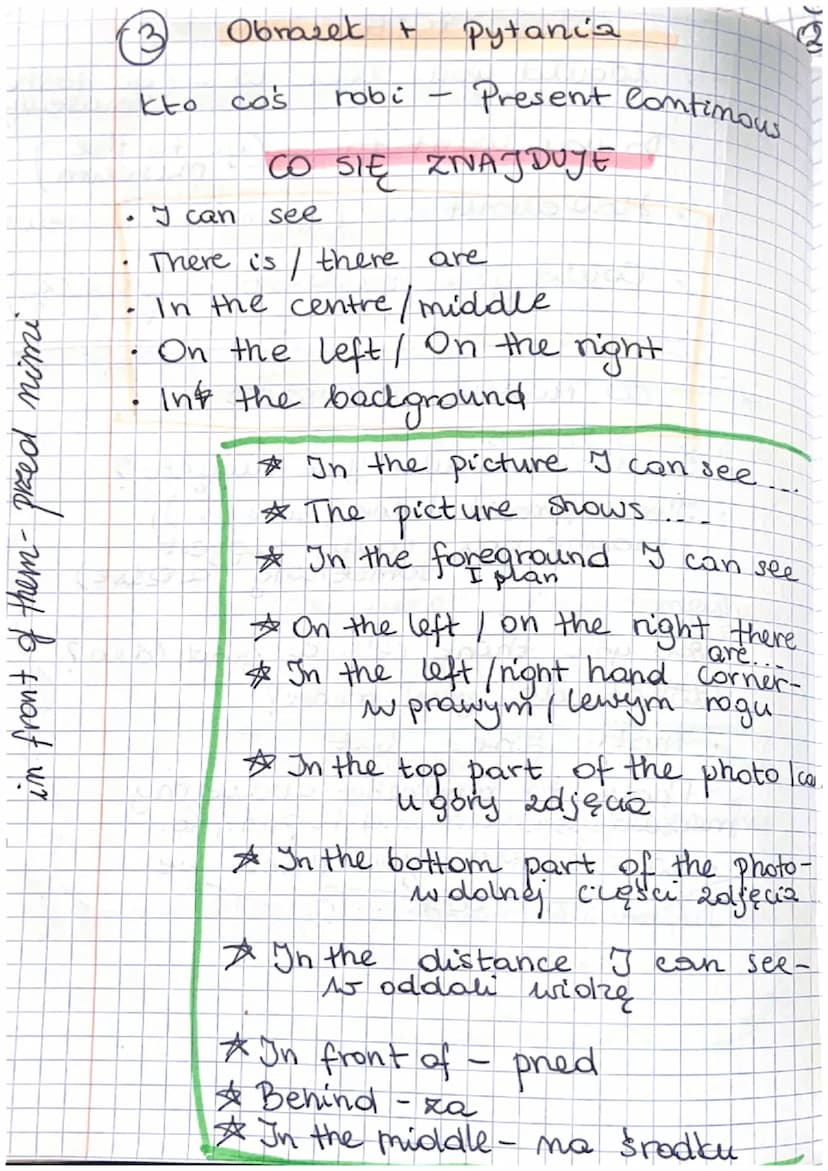 3 Obrazek + pytania
kto coś robi – Present Continous
CO SIĘ ZNAJDUJE
• I can see
• There is / there are
• In the centre / middle
• On the left / On the right
• In the background
☆ In the picture I can see ...
☆ The picture shows ....
☆ In the foreground I can see
I plan
☆ On the left / on the right there
are...
☆ In the left / right hand corner -
w prawym / lewym rogu
☆ In the top part of the photo I ca
u góry zdjęcia
☆ In the bottom part of the photo -
w dolnej części zdjęcia
☆ In the distance I can see -
w oddali widzę
☆ In front of - przed
☆ Behind - za
☆ In the middle - na środku
in front of them - przed nimi